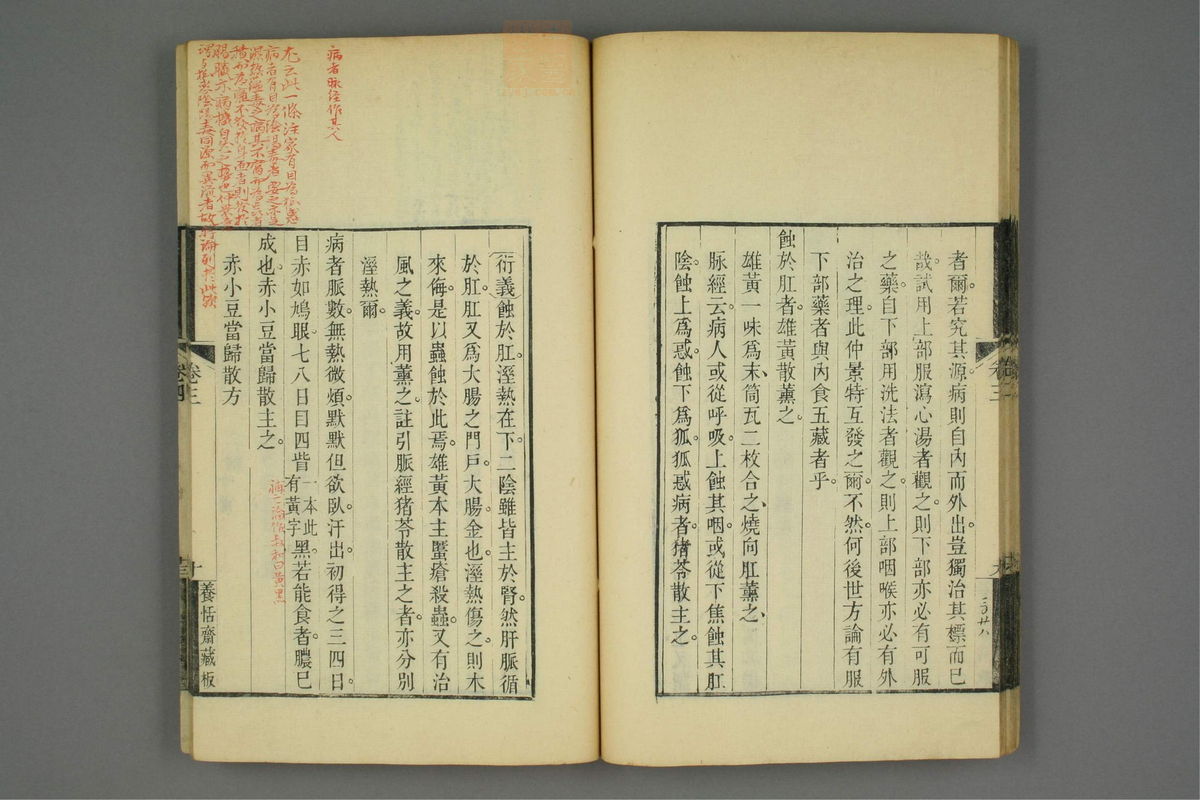 者爾。若究其源。病則自內而外出。豈獨治其標而已
哉。試用上部服瀉心湯者觀之。則下部亦必有可服
之藥。自下部用洗法者觀之。則上部咽喉亦必有外
治之理。此仲景特互發之爾。不然。何後世方論有服
下部藥者與內食五藏者乎。
蝕於肛者。雄黃散薰之。
雄黃一味爲末、筒瓦二枚合之、燒向肛薰之、
脈經云。病人或從呼吸上蝕其咽。或從下焦蝕其肛
陰。蝕上爲惑。蝕下爲狐。狐惑病者。猪苓散主之。
卷三
衍義蝕於肛。溼熱在下。二陰雖皆主於腎。然肝脈循
於肛。肛又爲大腸之門戶。大腸金也。溼熱傷之。則木
來侮。是以蟲蝕於此焉。雄黃本主䘌瘡殺蟲。又有治
風之義。故用薰之。註引脈經猪苓散主之者。亦分別
溼熱爾。
病者脈數。無熱微煩。默默但欲臥。汗出。初得之三四日。
目赤如鳩眼。七八日。目四眥一本此有黃字黑。若能食者。膿已
成也。赤小豆當歸散主之。
赤小豆當歸散方
卷三
十
養恬齋藏板
卷四
病者脉經作其人